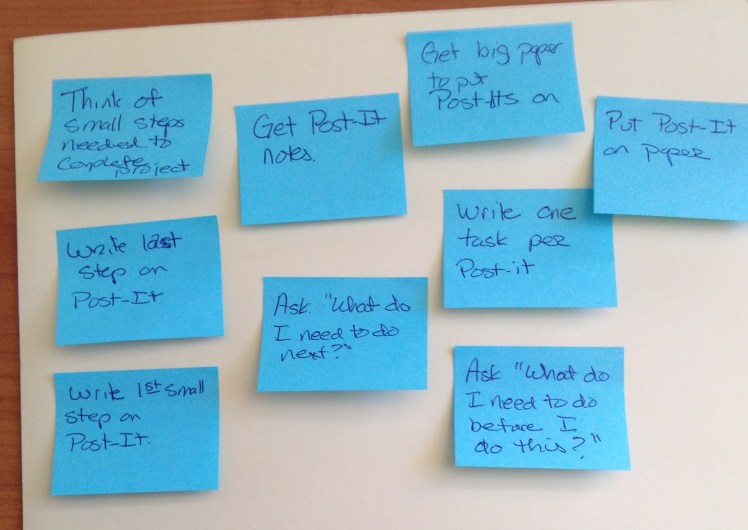 Think of
small steps
needed to
Complete project
Get Post-It
notes.
Get big paper
to put
Post-Its on
Put Post-It
on paper
Write last
step on
Post-It
Ask "What do
I need to do
next?"
Write one
task per
Post-it
Write 1st small
step on
Post-It.
Ask "What do
I need to do
before I
do this?"